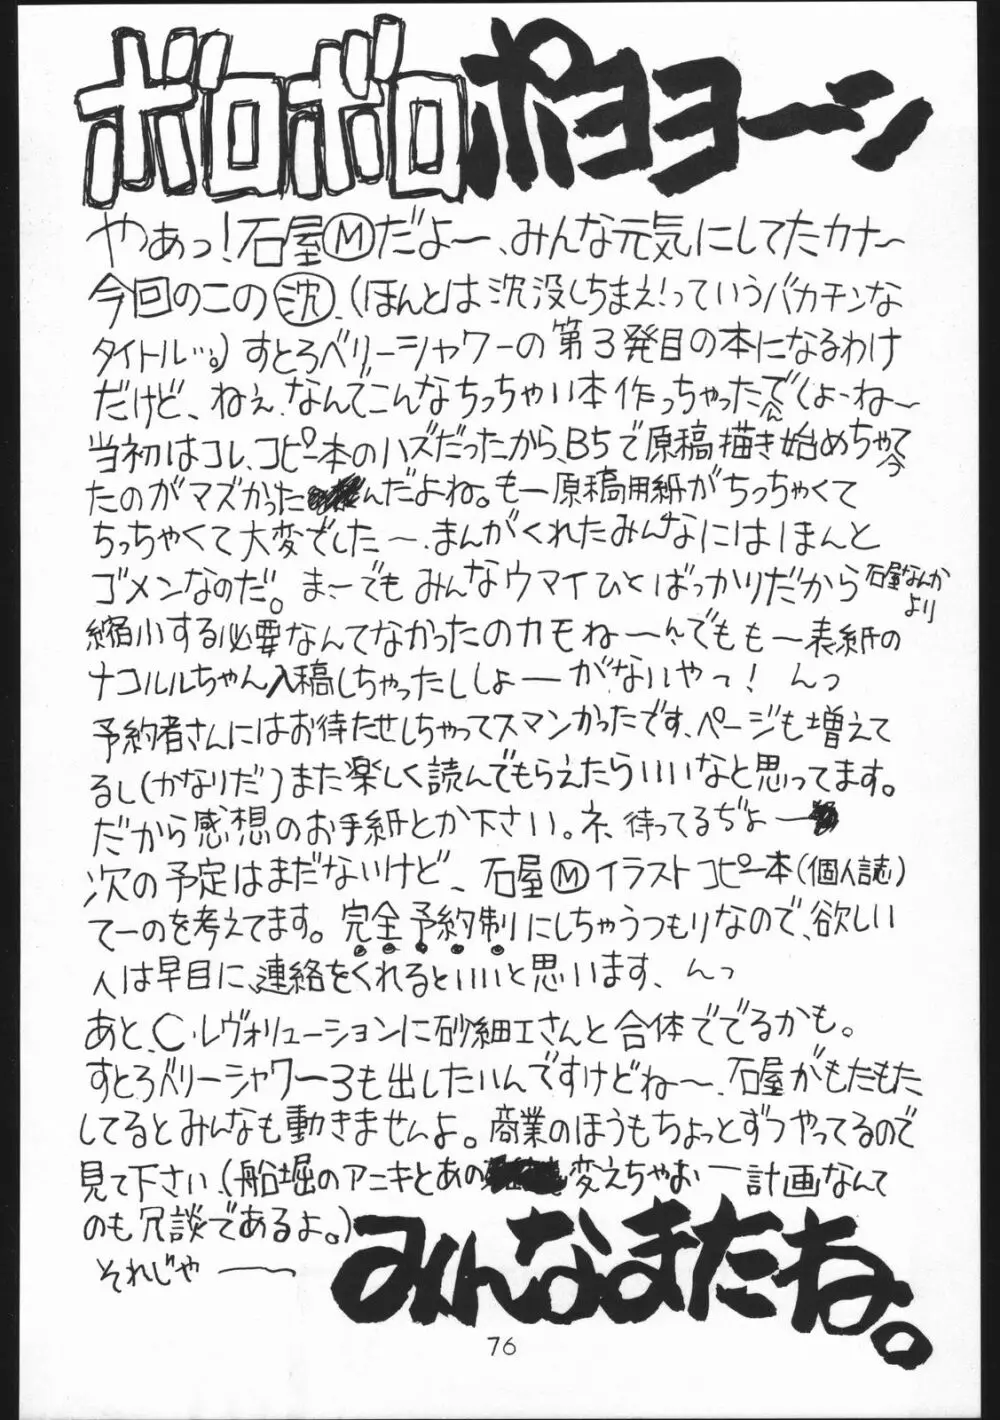 ボロボロポヨヨーン
やぁっ!石屋Ⓜだよ〜、みんな元気にしてたカナ〜
今回のこの㊟沈、(ほんとは沈没しちまえ!っていうバカチンな
タイトル…。)すとろベリーシャワーの第3発目の本になるわけ
だけど、ねぇ、なんでこんなちっちゃい本作っちゃったんでしょーね〜
当初はコレ、コピー本のハズだったから、B5で原稿描き始めちゃって
たのがマズかったんだよね。もー原稿用紙がちっちゃくて
ちっちゃくて大変でした〜、まんがくれたみんなにはほんと
ゴメンなのだ。まーでもみんなウマイひとばっかりだから石屋なんかより
縮小する必要なんてなかったのカモね〜んでもも〜表紙の
ナコルルちゃん入稿しちゃったししょーがないやっ!んっ
予約者さんにはお待たせしちゃってスマンかったです、ページも増えて
るし(かなりだ)また楽しく読んでもらえたらいいなと思ってます。
だから感想のお手紙とか下さい。ネ、待ってるぢょー
次の予定はまだないけど、石屋Ⓜイラストコピー本(個人誌)
てーのを考えてます。完全予約制にしちゃうつもりなので、欲しい
人は早目に、連絡をくれるといいと思います、んっ
あと、C・レヴォリューションに砂細工さんと合体ででるかも。
すとろベリーシャワー3も出したいんですけどね〜、石屋がもたもた
してるとみんなも動きませんよ。商業のほうもちょっとずつやってるので
見て下さい、(船堀のアニキとあの変えちゃおー計画なんて
のも冗談であるよ。)
それじゃー みんなまたね。
76